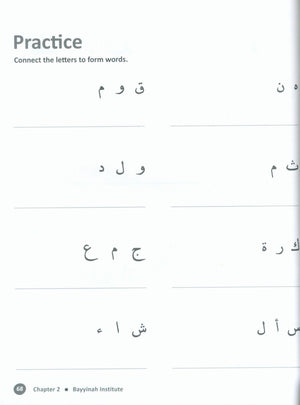 Practice
Connect the letters to form words.
ق و م
ه ن
و ل د
ث م
ج م ع
ك ر ة
ش ا ء
س أ ل
68 Chapter 2 ■ Bayyinah Institute